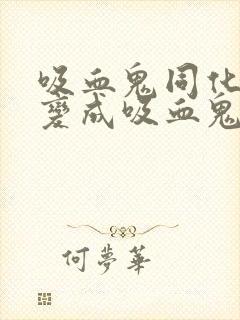 吸血鬼同化
變成吸血鬼
何夢華